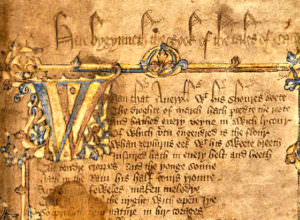 Here bygynneth the Book of the tales of
Whan that Aueryll wt his shoures soote
The droghte of March hath perced to the roote
And bathed euery veyne in swich lycour
Of which vertu engendred is the flour
Whan zephirus eek wt his sweete breeth
Inspired hath in euery holt and heeth
The tendre croppes and the yonge sonne
Hath in the Ram his half cours yronne
foweles maken melodye
the nyght with open Iye
So priketh hem nature in hir corages